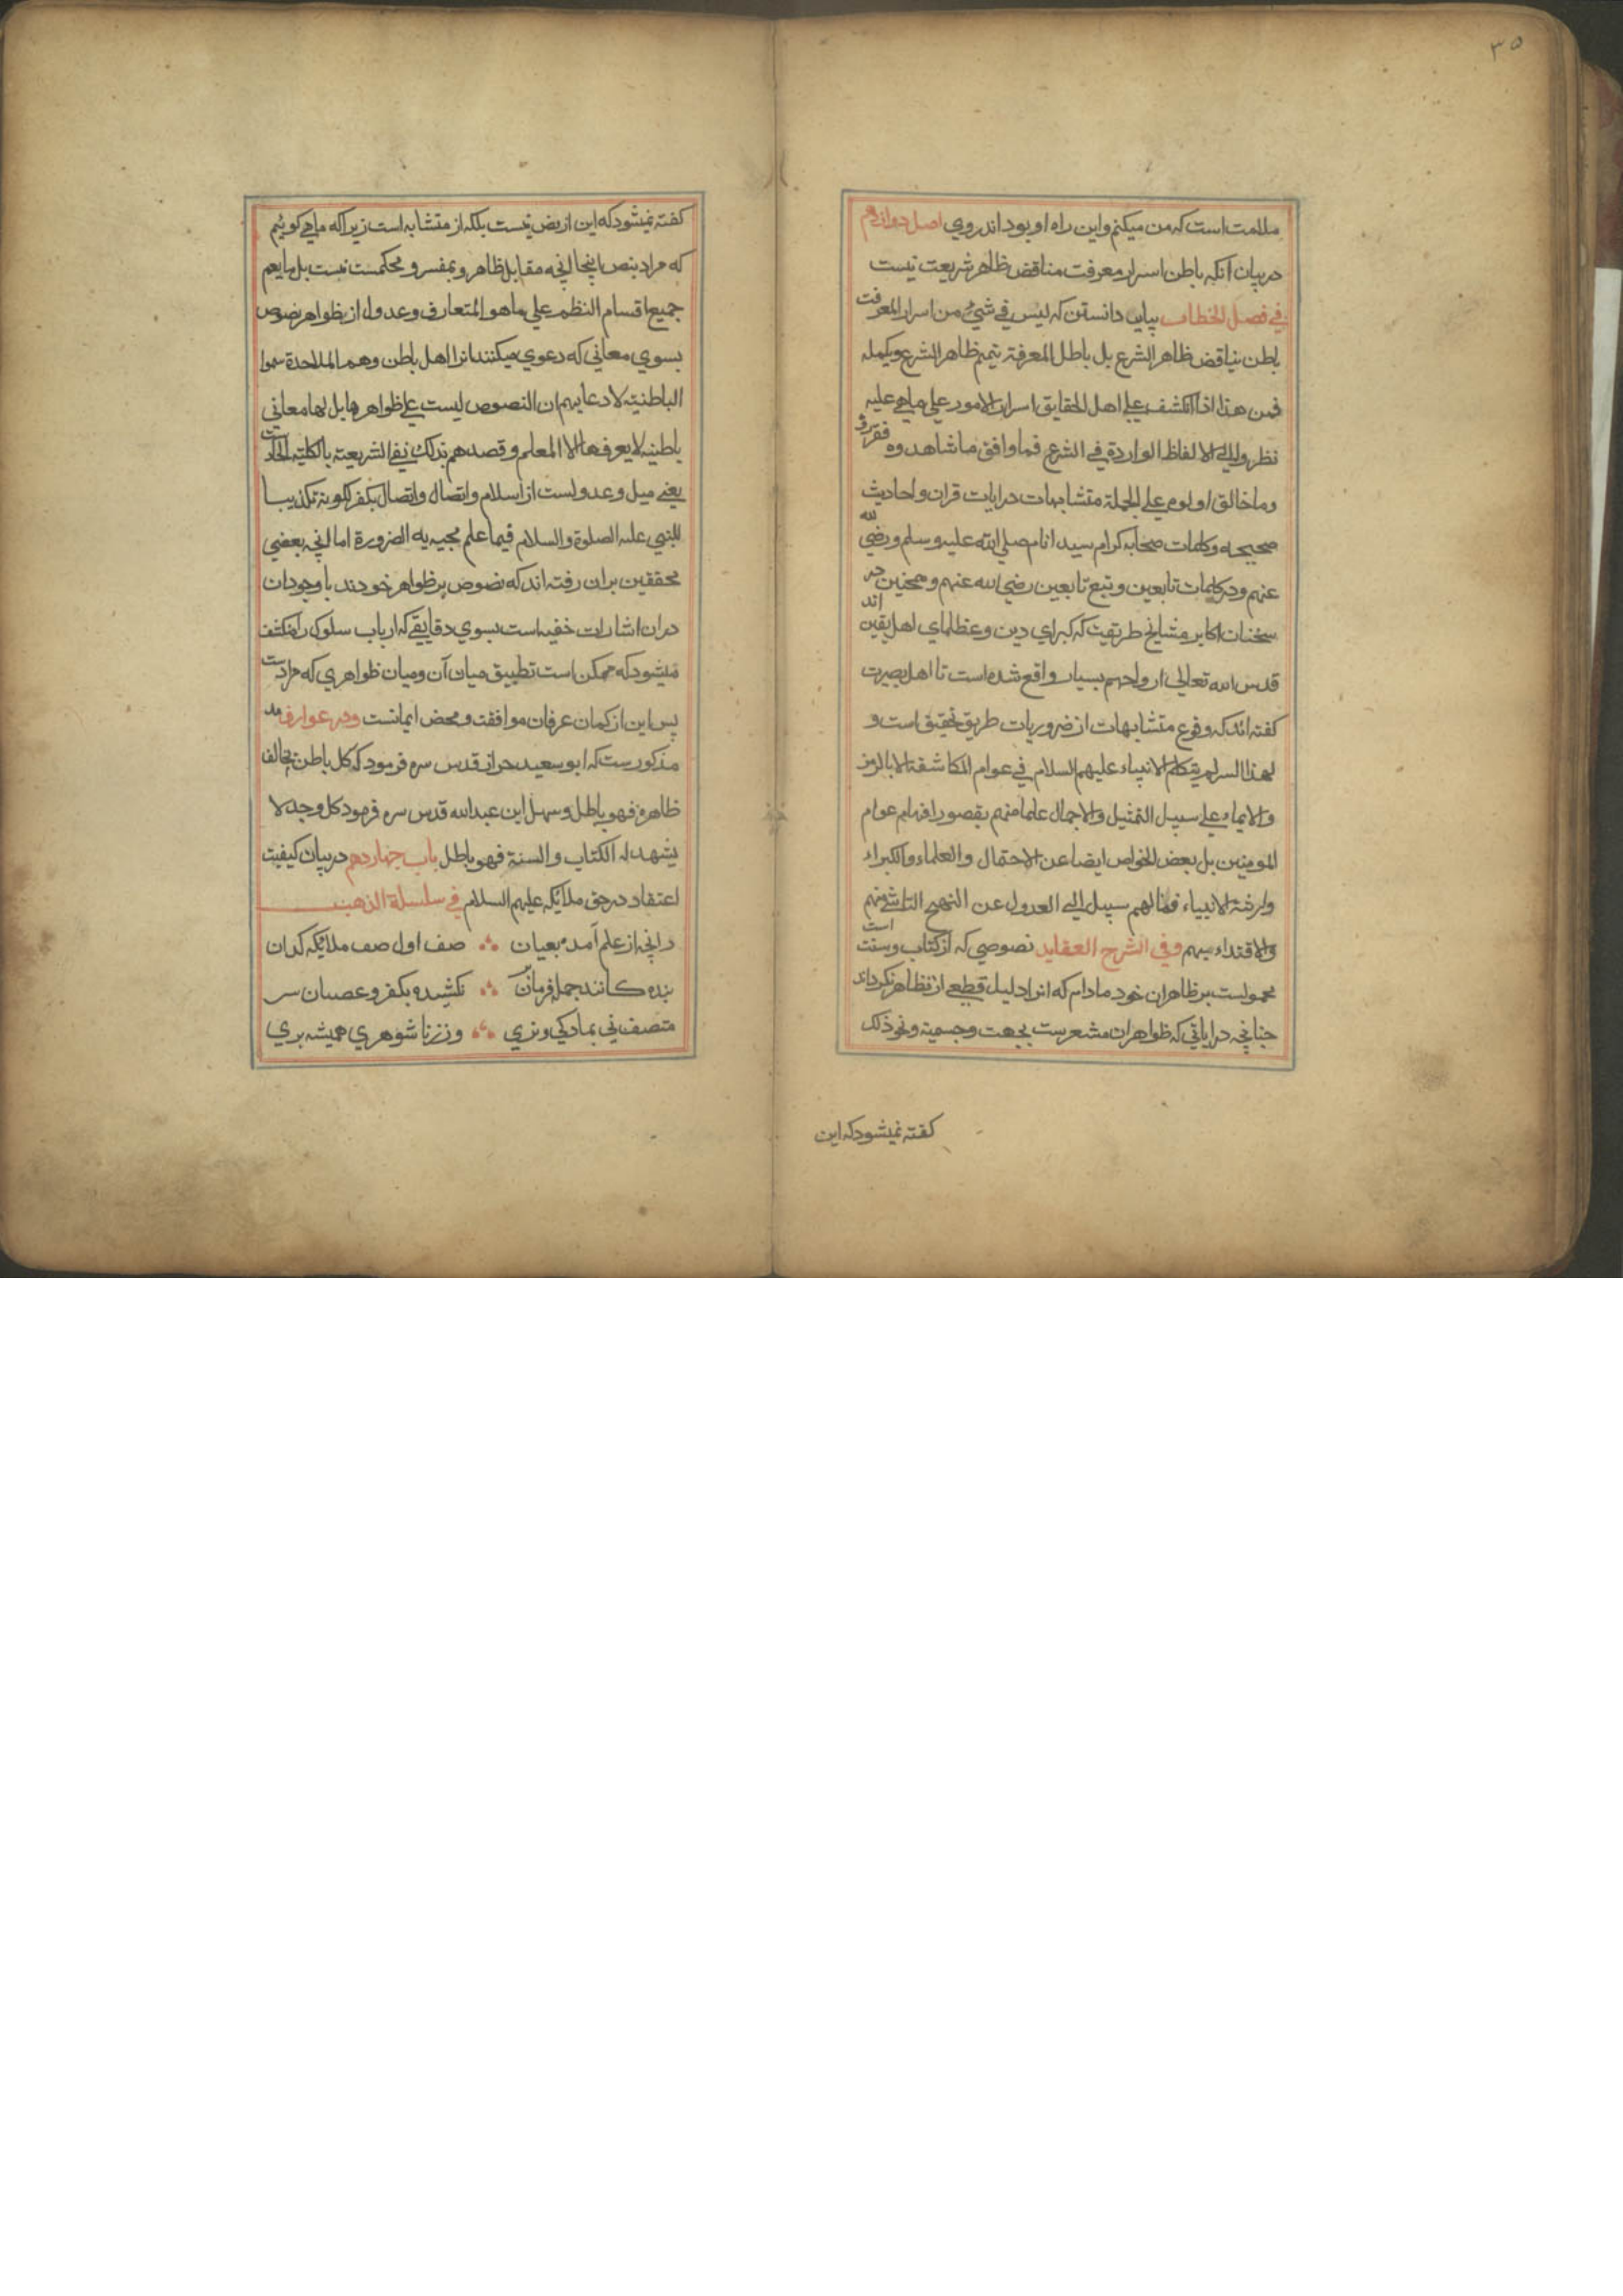 ٣٥
ملامت است که من میکنم و این راه او بود اندر وی اصل دوازدهم
در بیان آنکه باطن اسرار معرفت مناقض ظاهر شریعت نیست
في فصل الخطاب بباید دانستن که لیس في شيء من اسرار المعرفت
باطن یناقض ظاهر الشرع بل باطل المعرفة یتمم ظاهر الشرع و یکمله
فمن هذا اذا انکشف علي اهل الحقایق اسرار الامور علي ما هي علیه
نظروا الي الالفاظ الواردة في الشرع فما وافق ما شاهدوه قرروه
وما خالف اولوه علي الجملة متشابهات در ایات قران و احادیث
صحیحه و کلمات صحابه کرام سید انام صلي الله علیه وسلم و رضي الله
عنهم و در کلمات تابعین و تبع تابعین رضي الله عنهم و همچنین در
سخنان اکابر مشایخ طریقت که کبرای دین و عظمای اهل یقین اند
قدس الله تعالی ارواحهم بسیار واقع شده است تا اهل بصیرت
گفته اند که وقوع متشابهات از ضروریات طریق تحقیق است و
لهذا السر لم یتکلم الانبیاء علیهم السلام في عوام المکاشفة الا بالرمز
والایماء علي سبیل التمثیل والاجمال علما منهم بقصور افهام عوام
المومنین بل بعض الخواص ایضا عن الاحتمال والعلماء والکبراء
وارثة الانبیاء فما لهم سبیل الي العدول عن النهج التاسي منهم
والاقتداء بهم وفي الشرح العقاید نصوصي که از کتاب و سنت است
محمولست بر ظاهران خود مادام که انرا دلیل قطعي از تظاهر نگرداند
چنانچه در ایاتي که ظواهر ان مشعرست بجهت و جسمیة و نحو ذلک
گفته نمیشود که این
گفته نمیشود که این از نص نیست بلکه از متشابه است زیرا که ما می گوییم
که مراد بنص اینجا انچه مقابل ظاهر و مفسر و محکمست نیست بل ما یعم
جمیع اقسام النظم علي ما هو المتعارف و عدول از ظواهر نصوص
بسوي معاني که دعوي میکنند انرا اهل باطن وهم الملاحدة سموا
الباطنیة لادعایهم ان النصوص لیست علي ظواهرها بل لها معاني
باطنیه لا یعرفها الا المعلم و قصدهم بذلک نفي الشریعة بالکلیة الحادست
یعني میل و عدولست از اسلام و اتصال و اتصال بکفر لکونه تکذیبا
للنبي علیه الصلوة والسلام فیما علم مجییه به الضرورة اما انچه بعضي
محققین بران رفته اند که نصوص بر ظواهر خودند با وجود ان
در ان اشارات خفیه است بسوي دقایقي که ارباب سلوک را منکشف
میشود که ممکن است تطبیق میان آن و میان ظواهري که مرادست
پس این از کمان عرفان موافقت و محض ایمانست و در عوارف
مذکورست که ابو سعید حراز قدس سره فرمود که کل باطن یخالف
ظاهره فهو باطل و سهل ابن عبدالله قدس سره فرمود کل وجد لا
یشهد له الکتاب والسنة فهو باطل باب چهاردهم در بیان کیفیت
اعتقاد در حق ملایکه علیهم السلام في سلسلة الذهب
زانچه از علم آمد بعیان صف اول صف ملایکه دان
بنده کانند جمله فرمان بر نکشیده بکفر و عصیان سر
متصف ني بمادگي و نري وز زناشوهري همیشه بري